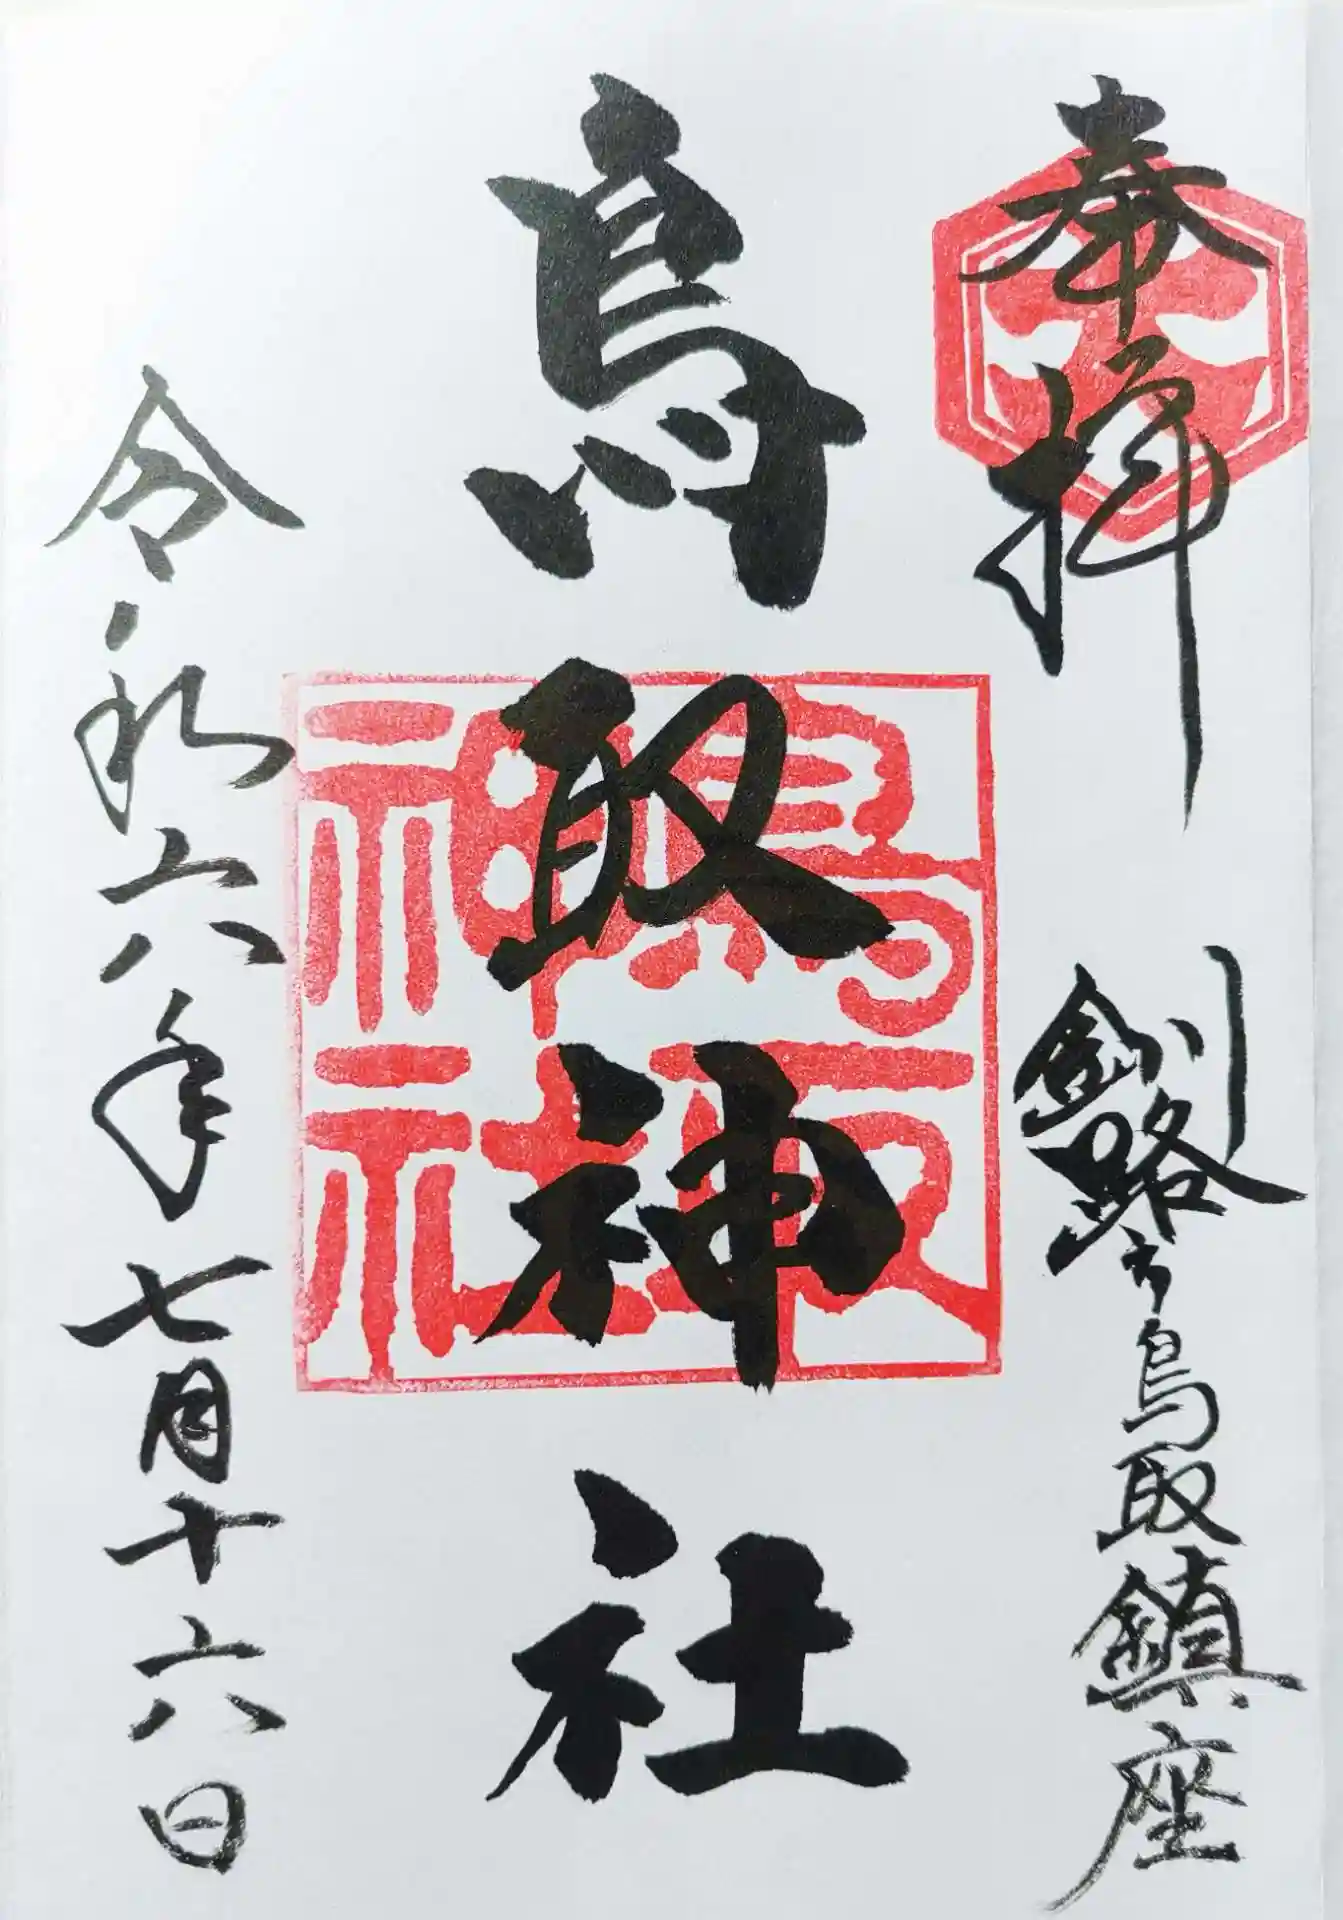 奉拝
釧路市鳥取鎮座
鳥取神社
鳥取神社
令和六年七月十六日